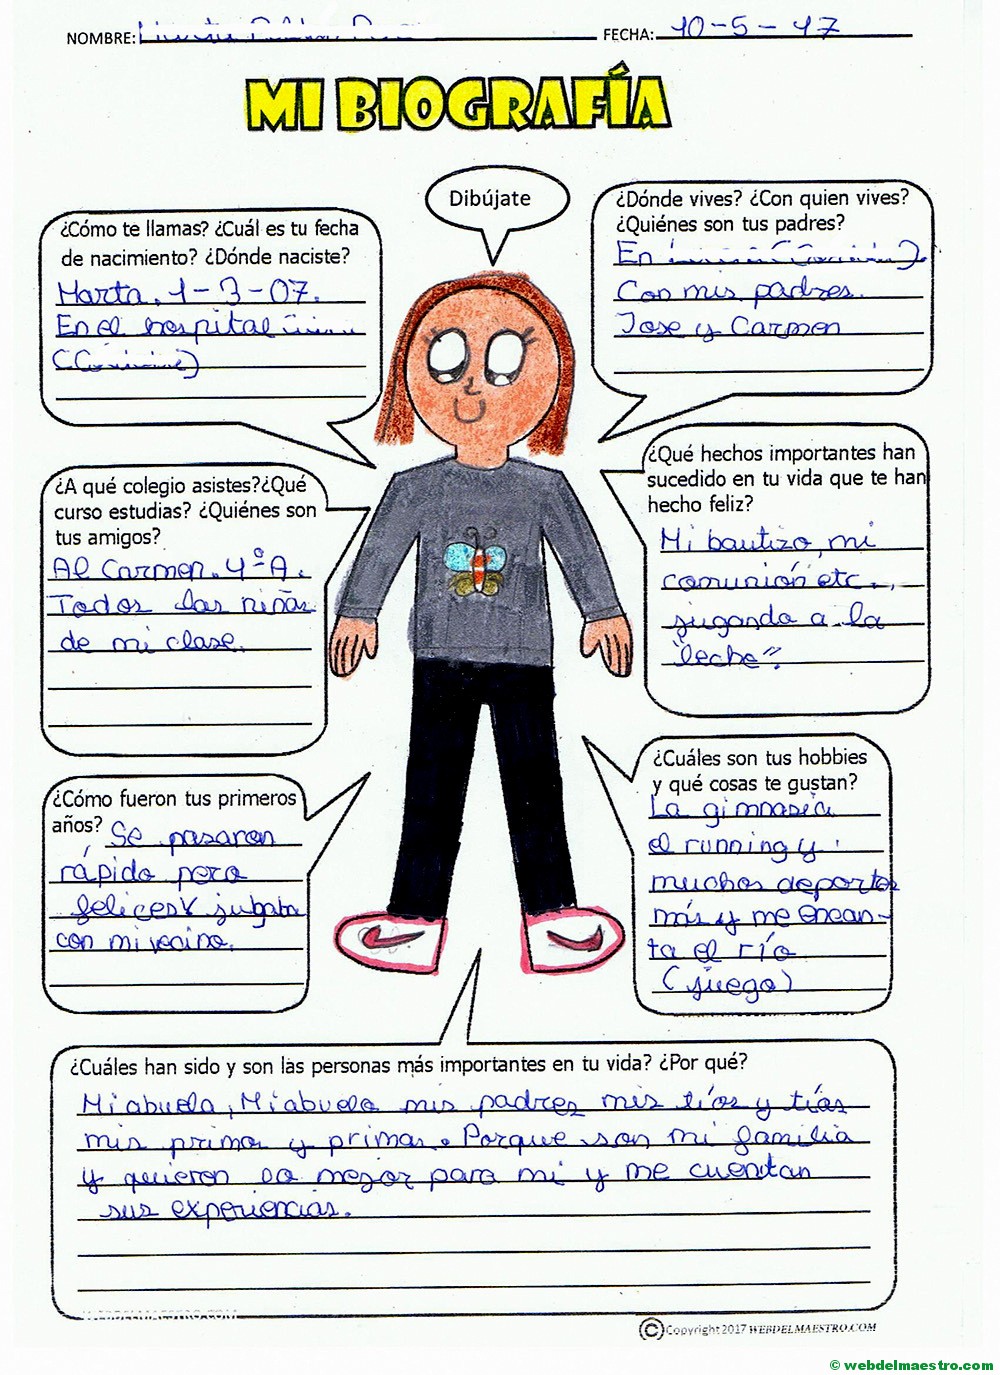 NOMBRE:
FECHA: 10-5-17
MI BIOGRAFÍA
Dibújate
¿Cómo te llamas? ¿Cuál es tu fecha
de nacimiento? ¿Dónde naciste?
Marta. 1-3-07.
En el hospital
¿Dónde vives? ¿Con quien vives?
¿Quiénes son tus padres?
En
Con mis padres.
Jose y Carmen
¿A qué colegio asistes?¿Qué
curso estudias? ¿Quiénes son
tus amigos?
Al Carmen. 4ºA.
Todos las niñas
de mi clase.
¿Qué hechos importantes han
sucedido en tu vida que te han
hecho feliz?
Mi bautizo, mi
comunión etc...,
jugando a la
"leche".
¿Cómo fueron tus primeros
años? Se pasaron
rápido pero
felices y jugaba
con mi vecino.
¿Cuáles son tus hobbies
y qué cosas te gustan?
La gimnasia
el running y
muchos deportes
más y me encan-
ta el río
(juego)
¿Cuáles han sido y son las personas más importantes en tu vida? ¿Por qué?
Mi abuela, Mi abuelo mis padres mis tíos y tías
mis primos y primas. Porque son mi familia
y quieren lo mejor para mi y me cuentan
sus experiencias.
WEBDELMAESTRO.COM
©Copyright 2017 WEBDELMAESTRO.COM
© webdelmaestro.com